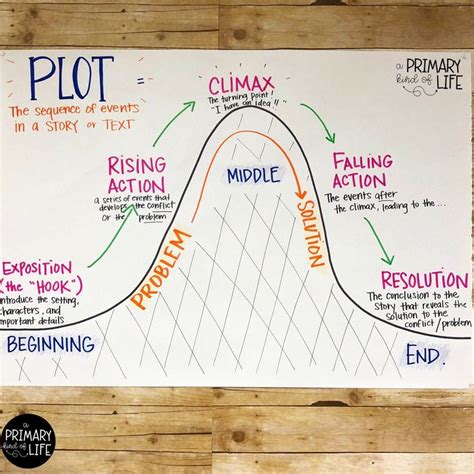 PLOT =
The sequence of events
in a STORY or TEXT
a
PRIMARY
kind of
LIFE
CLIMAX
The turning point!
"I have an idea!!"
RISING
ACTION
a series of events that
develops the conflict
or the problem
MIDDLE
FALLING
ACTION
The events after
the climax, leading to the...
PROBLEM
SOLUTION
EXPOSITION
(the "HOOK")
introduce the setting,
characters, and
important details
RESOLUTION
The conclusion to the
story that reveals the
solution to the
conflict/problem
BEGINNING
END.
a
PRIMARY
kind of
LIFE